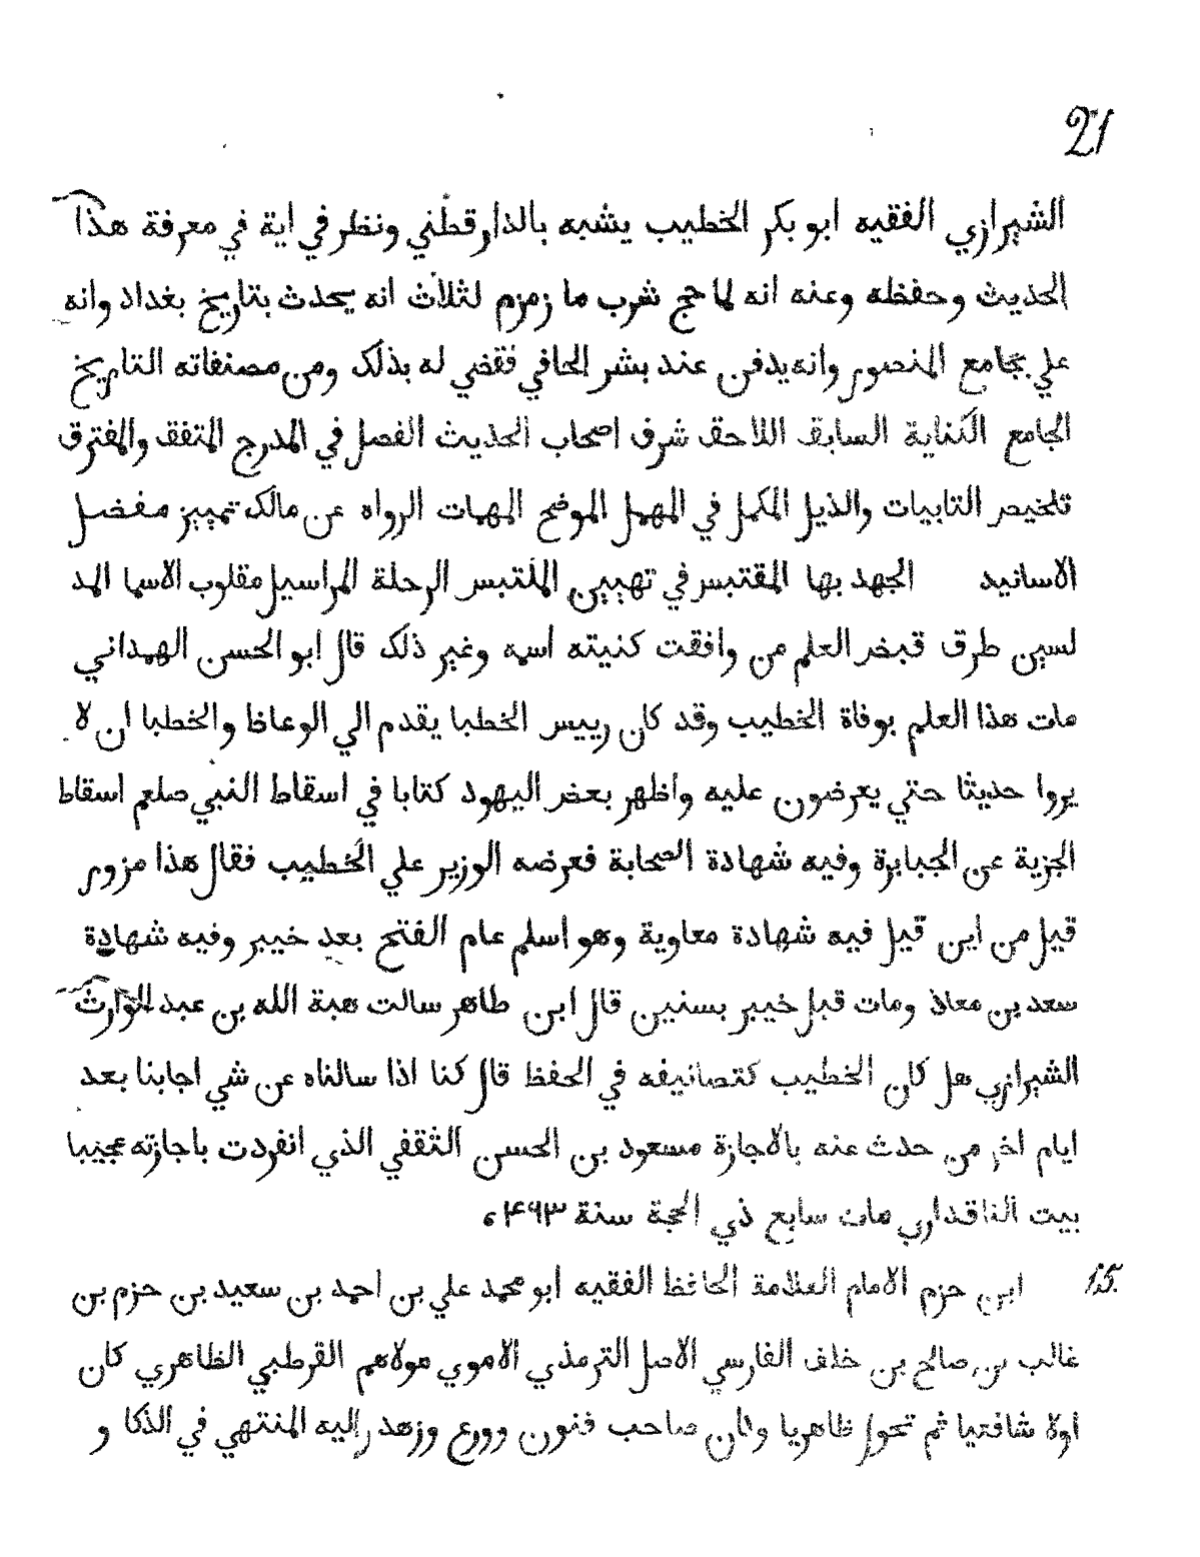 21
الشيرازي الفقيه ابو بكر الخطيب يشبه بالدارقطني ونظر في اية في معرفة هذا
الحديث وحفظه وعنه انه لما حج شرب ما زمزم لثلاث انه يحدث بتاريخ بغداد وانه
علي بجامع المنصور وانه يدفن عند بشر الحافي فقضي له بذلك ومن مصنفاته التاريخ
الجامع الكفاية السابق اللاحق شرف اصحاب الحديث الفصل في المدرج المتفق والمفترق
تلخيص التابيات والذيل المكمل في المهمل الموضح المهمات الرواه عن مالك تمييز مفضل
الاسانيد الجهد بها المقتبس في تهيين الملتبس الرحلة المراسيل مقلوب الاسما المد
لسين طرق قبض العلم من وافقت كنيته اسمه وغير ذلك قال ابو الحسن الهمداني
مات هذا العلم بوفاة الخطيب وقد كان رييس الخطبا يقدم الي الوعاظ والخطبا ان لا
يروا حديثا حتي يعرضون عليه واظهر بعض اليهود كتابا في اسقاط النبي صلعم اسقاط
الجزية عن الجبابرة وفيه شهادة الصحابة فعرضه الوزير علي الخطيب فقال هذا مزور
قيل من اين قيل فيه شهادة معاوية وهو اسلم عام الفتح بعد خيبر وفيه شهادة
سعد بن معاذ ومات قبل خيبر بسنين قال ابن طاهر سالت هبة الله بن عبد الوارث
الشيرازي هل كان الخطيب كتصانيفه في الحفظ قال كنا اذا سالناه عن شي اجابنا بعد
ايام اخر من حدث عنه بالاجازة مسعود بن الحسن الثقفي الذي انفردت باجازته عجيبا
بيت الناقداري مات سابع ذي الحجة سنة ۴۹۳،
15. ابن حزم الامام العلامة الحافظ الفقيه ابو محمد علي بن احمد بن سعيد بن حزم بن
غالب بن صالح بن خلف الفارسي الاصل الترمذي الاموي مولاهم القرطبي الظاهري كان
اولا شافتيا ثم تحول ظاهريا وكان صاحب فنون وورع وزهد واليه المنتهي في الذكا و